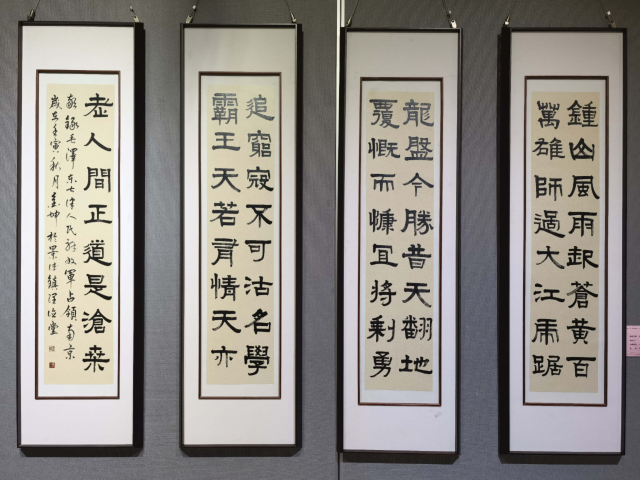 鍾山風雨起蒼黃百
萬雄師過大江虎踞
龍盤今勝昔天翻地
覆慨而慷宜將剩勇
追窮寇不可沽名學
霸王天若有情天亦
老人間正道是滄桑
敬錄毛澤東七律人民解放軍占領南京
歲在壬寅秋月坤於景德鎮堂